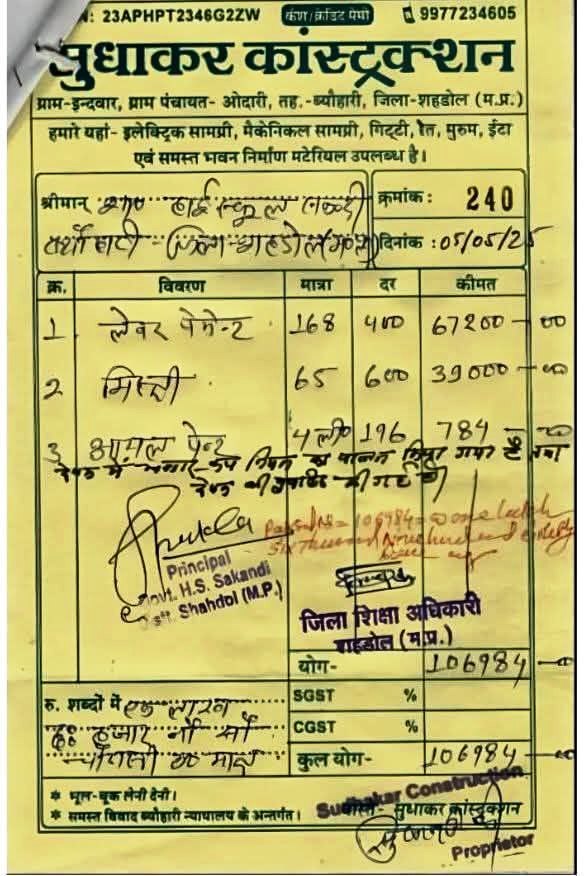 N: 23APHPT2346G2ZW कैश/क्रेडिट मेमो 9977234605
सुधाकर कांस्ट्रक्शन
ग्राम-इन्दवार, ग्राम पंचायत- ओदारी, तह.-ब्यौहारी, जिला-शहडोल (म.प्र.)
हमारे यहां- इलेक्ट्रिक सामग्री, मैकेनिकल सामग्री, गिट्टी, रेत, मुरुम, ईटा
एवं समस्त भवन निर्माण मटेरियल उपलब्ध है।
श्रीमान् शा० हाई स्कूल सकन्दी क्रमांक: 240
दिनांक : 05/05/25
क्र. विवरण मात्रा दर कीमत
1 लेवर पेमेन्ट 168 400 67200-00
2 मिस्त्री 65 600 39000-00
3 आयल पेन्ट 4 ली० 196 784-00
Principal
Govt. H.S. Sakandi
Distt. Shahdol (M.P.)
Passed Rs = 106984 = one lakh
Six thousand Nine hundred eighty
four
जिला शिक्षा अधिकारी
शहडोल (म.प्र.)
योग- 106984-00
रु. शब्दों में एक लाख SGST %
छः हजार नौ सौ CGST %
चौरासी रू मात्र कुल योग- 106984-00
* भूल-चूक लेनी देनी।
* समस्त विवाद ब्यौहारी न्यायालय के अन्तर्गत।
Sudhakar Construction
वास्ते- सुधाकर कांस्ट्रक्शन
Proprietor